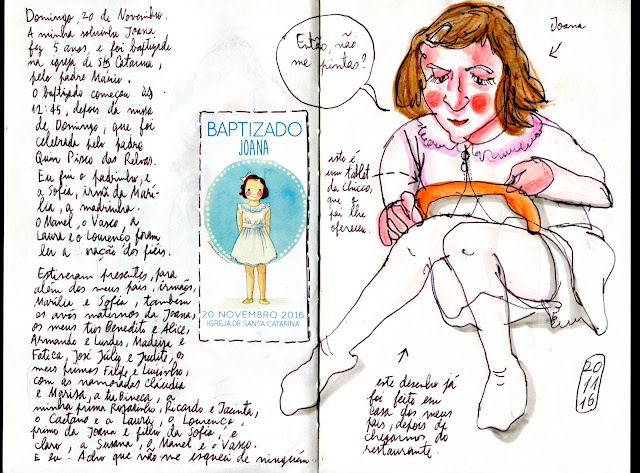 Domingo, 20 de Novembro.
A minha sobrinha Joana
fez 5 anos, e foi baptizada
na igreja de Sta Catarina,
pelo padre Mário.
O baptizado começou às
12:45, depois da missa
de Domingo, que foi
celebrada pelo padre
Quim Pisco das Relvas.
Eu fui o padrinho, e
a Sofia, irmã da Marí-
lia, a madrinha.
O Manel, o Vasco, a
Laura e o Lourenço foram
ler a oração dos fiéis.
Estiveram presentes, para
além dos meus pais, irmãos,
Marília e Sofia, também
os avós maternos da Joana,
os meus tios Benedito e Alice,
Armando e Lurdes, Madeira e
Fatica, José Júlio e Judite, os
meus primos Filipe e Luisinho,
com as namoradas Cláudia
e Marisa, a tia Bineca, a
minha prima Rosarinho, Ricardo e Jacinta,
o Caetano e a Laura, o Lourenço,
primo da Joana e filho da Sofia, e
claro, a Susana, o Manel e o Vasco.
E eu. Acho que não me esqueci de ninguém...
BAPTIZADO
JOANA
20 NOVEMBRO 2016
IGREJA DE SANTA CATARINA
Então, não
me pintas?
Joana
isto é
um tablet
da Chicco,
que o
pai lhe
ofereceu.
este desenho já
foi feito em
casa dos meus
pais, depois de
chegarmos do
restaurante.
20
11
16